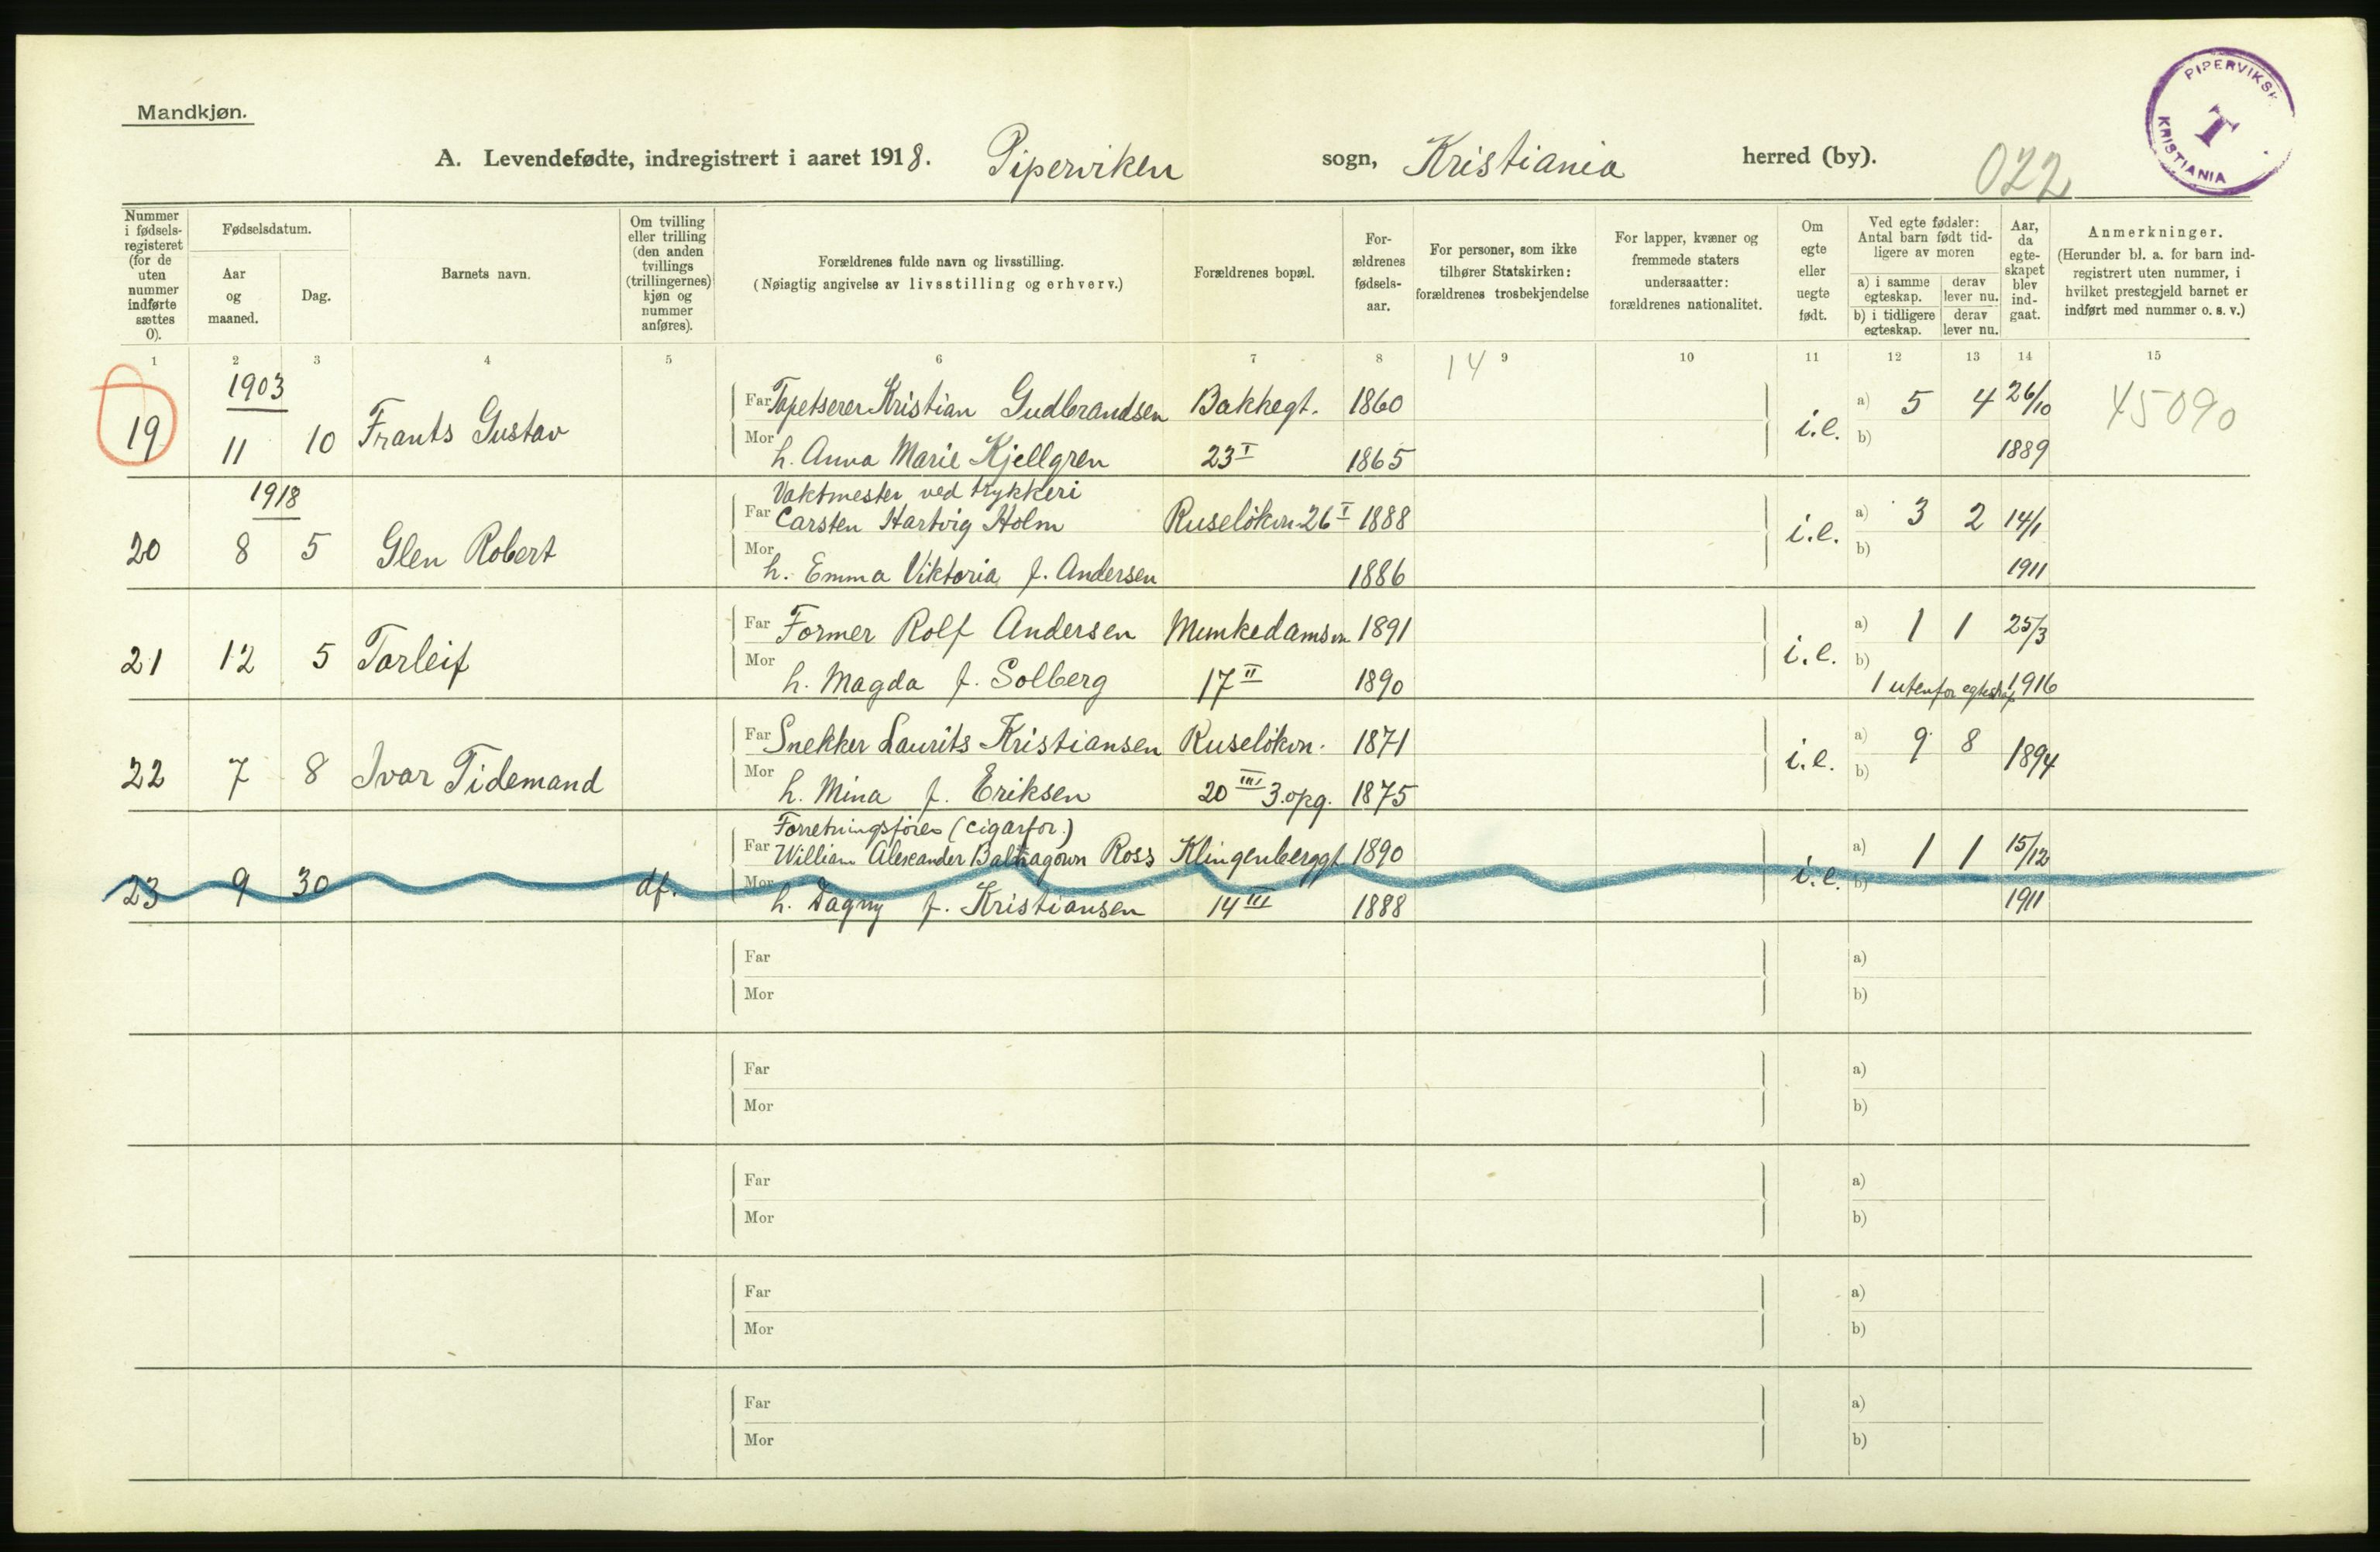 Mandkjøn.
PIPERVIKSK
T
KRISTIANIA
A. Levendefødte, indregistrert i aaret 1918. Piperviken sogn, Kristiania herred (by).
022
Nummer i fødsels-registeret (for de uten nummer indførte sættes 0).
Fødselsdatum.
Aar og maaned.
Dag.
Barnets navn.
Om tvilling eller trilling (den anden tvillings (trillingernes) kjøn og nummer anføres).
Forældrenes fulde navn og livsstilling.
(Nøiagtig angivelse av livsstilling og erhverv.)
Forældrenes bopæl.
For-ældrenes fødsels-aar.
For personer, som ikke tilhører Statskirken: forældrenes trosbekjendelse
For lapper, kvæner og fremmede staters undersaatter: forældrenes nationalitet.
Om egte eller uegte født.
Ved egte fødsler: Antal barn født tid-ligere av moren
a) i samme egteskap.
derav lever nu.
b) i tidligere egteskap.
derav lever nu.
Aar, da egte-skapet blev ind-gaat.
Anmerkninger.
(Herunder bl. a. for barn ind-registrert uten nummer, i hvilket prestegjeld barnet er indført med nummer o. s. v.)
1 2 3 4 5 6 7 8 14 9 10 11 12 13 14 15
1903
Far Tapetserer Kristian Gudbrandsen Bakkegt. 1860 a) 5 4 26/10 45090
19 11 10 Frants Gustav i.e. b)
Mor h. Anna Marie Kjellgren 23 I 1865 1889
1918 Vaktmester ved trykkeri
Far Carsten Hartvig Holm Ruseløkvn. 26 I 1888 a) 3 2 14/1
20 8 5 Glen Robert i.e. b)
Mor h. Emma Viktoria f. Andersen 1886 1911
Far Former Rolf Andersen Munkedamsvn 1891 a) 1 1 25/3
21 12 5 Torleif i.e. b)
Mor h. Magda f. Solberg 17 II 1890 1 utenfor egteskap 1916
Far Snekker Laurits Kristiansen Ruseløkvn. 1871 a) 9 8
22 7 8 Ivar Tidemand i.e. b) 1894
Mor h. Mina f. Eriksen 20 III 3. opg. 1875
Forretningsfører (cigarfor.)
Far William Alexander Balnagown Ross Klingenberggt 1890 a) 1 1 15/12
23 9 30 df. i.e. b)
Mor h. Dagny f. Kristiansen 14 III 1888 1911
Far a)
Mor b)
Far a)
Mor b)
Far a)
Mor b)
Far a)
Mor b)
Far a)
Mor b)